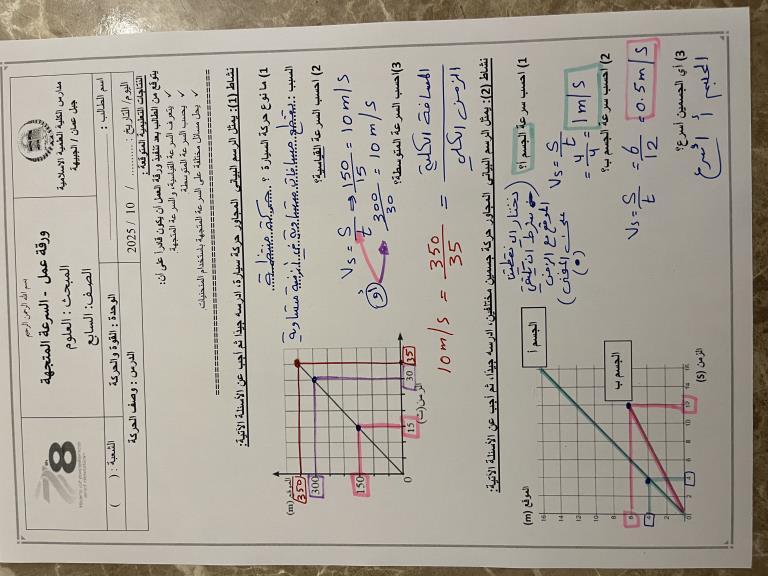 بسم الله الرحمن الرحيم
مدارس الكلية العلمية الاسلامية
جبل عمان / الجبيهة
ورقة عمل - السرعة المتجهة
المبحث : العلوم
الصف: السابع
78
اسم الطالب :
الوحدة : القوة والحركة
الشعبة : ( )
اليوم/ التاريخ : ......... / 10 / 2025
الدرس : وصف الحركة
النتاجات التعليمية المتوقعة:
يتوقع من الطالب بعد تنفيذ ورقة العمل أن يكون قادرا على أن:
✓ يتعرف السرعة القياسية، والسرعة المتجهة.
✓ يحسب السرعة المتوسطة
✓ يحل مسائل مختلفة على السرعة المتجهة باستخدام المنحنيات
نشاط (1): يمثل الرسم البياني المجاور حركة سيارة، ادرسه جيداً ثم أجب عن الأسئلة الآتية:
1) ما نوع حركة السيارة ؟ حركة منتظمة
السبب : تقطع مسافات متساوية في أزمنة متساوية
2) احسب السرعة القياسية؟
Vs = S/t → 150/15 = 10 m/s
أو 300/30 = 10 m/s
3) احسب السرعة المتوسطة؟
المسافة الكلية / الزمن الكلي = 350/35 = 10 m/s
الموقع (m)
350
300
150
0
15
30
35
الزمن (ث)
نشاط (2): يمثل الرسم البياني المجاور حركة جسمين مختلفين، ادرسه جيداً، ثم أجب عن الأسئلة الآتية:
1) احسب سرعة الجسم أ؟
(نختار أي نقطة
بشرط أن يتلاقى
الموقع مع الزمن
على المنحنى)
(•)
Vs = S/t
= 4/4 = 1 m/s
2) احسب سرعة الجسم ب؟
Vs = S/t = 6/12 = 0.5 m/s
3) أي الجسمين أسرع؟
الجسم أ أسرع
الموقع (m)
الجسم أ
الجسم ب
16
14
12
10
8
6
4
2
0
2
4
6
8
10
12
14
16
الزمن (s)